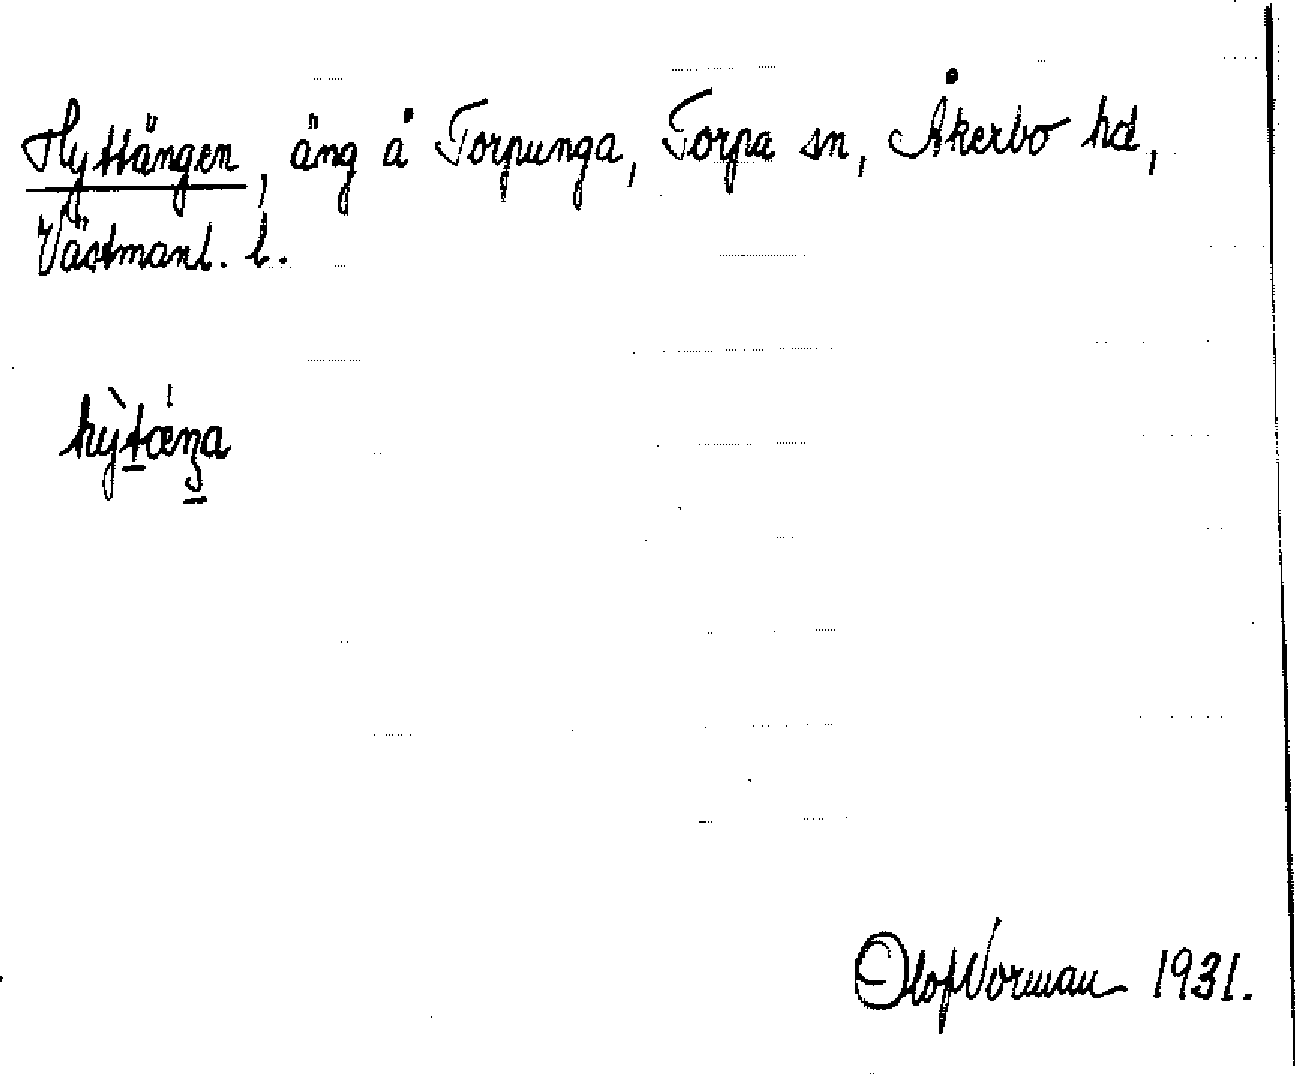 Hyttängen, äng å Torpunga, Torpa sn, Åkerbo hd,
Västmanl. l.
hỳ̬tǽŋa
Olof Norman 1931.